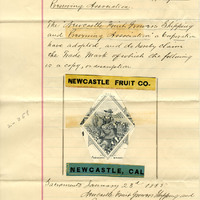 Growing Association
The Newcastle Fruit Growers Shipping
and Growing Association a Corporation
have adopted, and do hereby claim
the Trade Mark of which the following
is a copy, or description
NEWCASTLE FRUIT CO.
NEWCASTLE, CAL
Sacramento January 23rd 1888
Newcastle Fruit Growers Shipping and